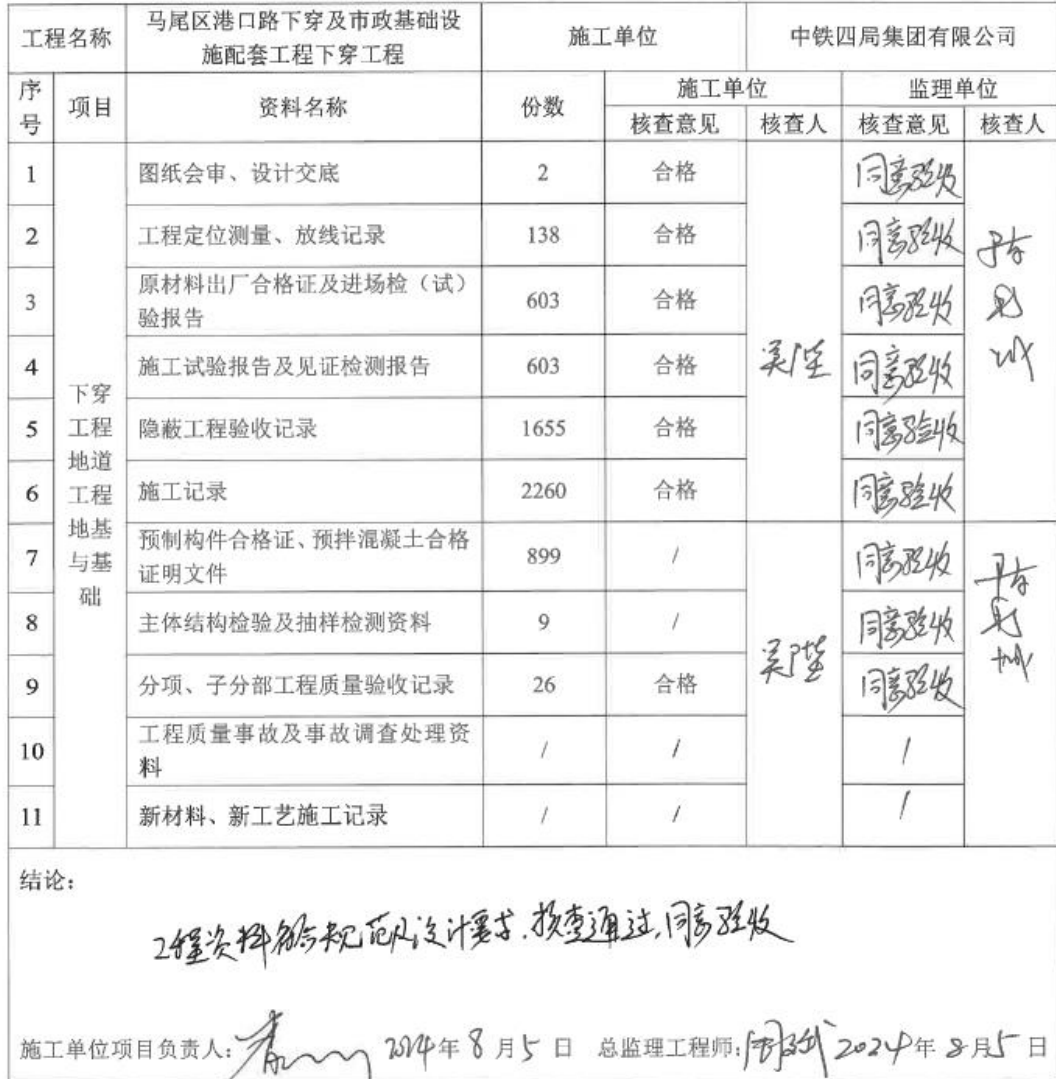 工程名称 马尾区港口路下穿及市政基础设施配套工程下穿工程 施工单位 中铁四局集团有限公司
序号 项目 资料名称 份数 施工单位 监理单位
核查意见 核查人 核查意见 核查人
下穿工程地道工程地基与基础
1 图纸会审、设计交底 2 合格 同意验收
2 工程定位测量、放线记录 138 合格 同意验收
3 原材料出厂合格证及进场检（试）验报告 603 合格 同意验收
4 施工试验报告及见证检测报告 603 合格 同意验收
5 隐蔽工程验收记录 1655 合格 同意验收
6 施工记录 2260 合格 同意验收
7 预制构件合格证、预拌混凝土合格证明文件 899 / 同意验收
8 主体结构检验及抽样检测资料 9 / 同意验收
9 分项、子分部工程质量验收记录 26 合格 同意验收
10 工程质量事故及事故调查处理资料 / / /
11 新材料、新工艺施工记录 / / /
结论：
工程资料符合规范及设计要求,核查通过,同意验收
施工单位项目负责人: 2024年8月5日 总监理工程师: 2024年8月5日